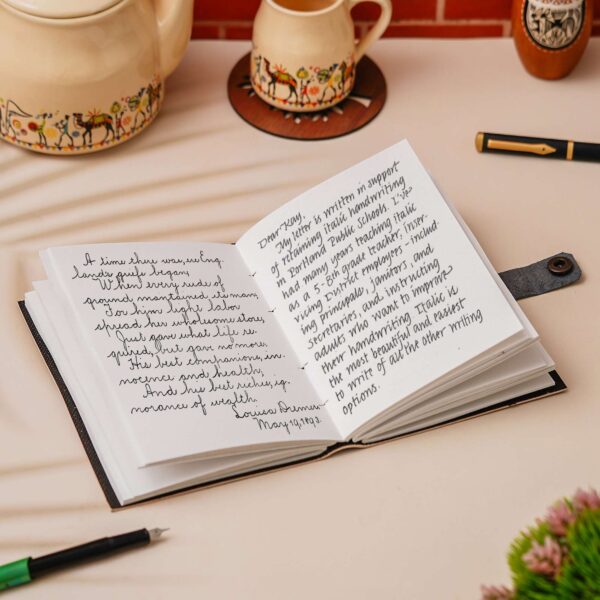 A time there was, ere Eng-
lands griefs began,
When every rude of
ground maintained its man;
For him light labor
spread her wholesome store,
Just gave what life re-
quired, but gave no more.
His best companions, in-
nocence and health,
And his best riches, ig-
norance of wealth.
Louisa
May 19, 1893.
Dear Kay,
My letter is written in support
of retaining italic handwriting
in Portland Public Schools. I've
had many years teaching italic
as a 5-8th grade teacher, inser-
vicing District employees - includ-
ing principals, janitors, and
secretaries, and instructing
adults who want to improve
their handwriting. Italic is
the most beautiful and easiest
to write of all the other writing
options.